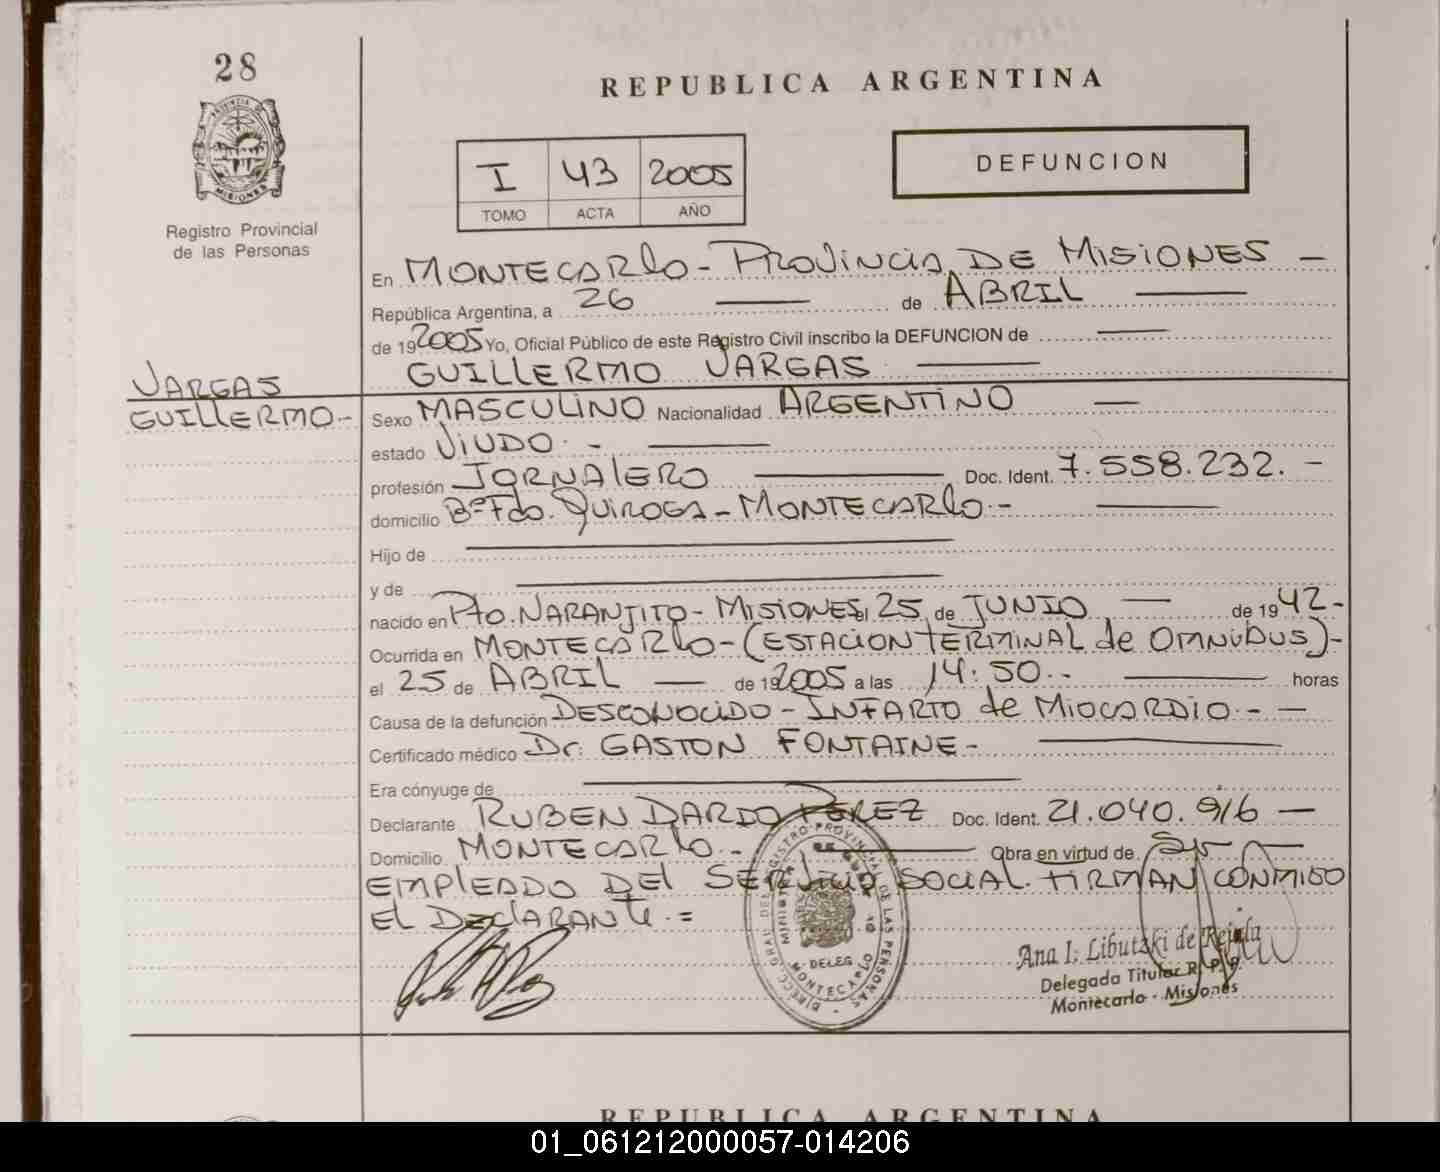 28
REPUBLICA ARGENTINA
I 43 2005
TOMO ACTA AÑO
DEFUNCION
PROVINCIA DE
MISIONES
Registro Provincial
de las Personas
En MONTECARLO - PROVINCIA DE MISIONES —
República Argentina, a 26 — de ABRIL —
de 19 2005 Yo, Oficial Público de este Registro Civil inscribo la DEFUNCION de —
GUILLERMO VARGAS —
VARGAS
GUILLERMO.-
Sexo MASCULINO Nacionalidad ARGENTINO —
estado VIUDO. - —
profesión JORNALERO — Doc. Ident. 7.558.232. -
domicilio Bº Fdo. QUIROGA - MONTECARLO. - —
Hijo de —
y de —
nacido en Pto. NARANJITO - MISIONES el 25 de JUNIO — de 19 42 -
Ocurrida en MONTECARLO - (ESTACION TERMINAL de OMNIBUS) -
el 25 de ABRIL — de 19 2005 a las 14:50. - — horas
Causa de la defunción DESCONOCIDO - INFARTO de MIOCARDIO. - —
Certificado médico Dr: GASTON FONTAINE - —
Era cónyuge de —
Declarante RUBEN DARDO PEREZ Doc. Ident. 21.040.916 —
Domicilio MONTECARLO. - — Obra en virtud de Ser —
EMPLEADO DEL SERVICIO SOCIAL. FIRMAN CONMIGO
EL DECLARANTE. =
DIRECC. GRAL DEL REGISTRO PROVINCIAL DE LAS PERSONAS
DELEG
MONTECARLO
Ana I. Libutzki de Rejala
Delegada Titular R. P. P.
Montecarlo - Misiones
REPUBLICA ARGENTINA
01_061212000057-014206